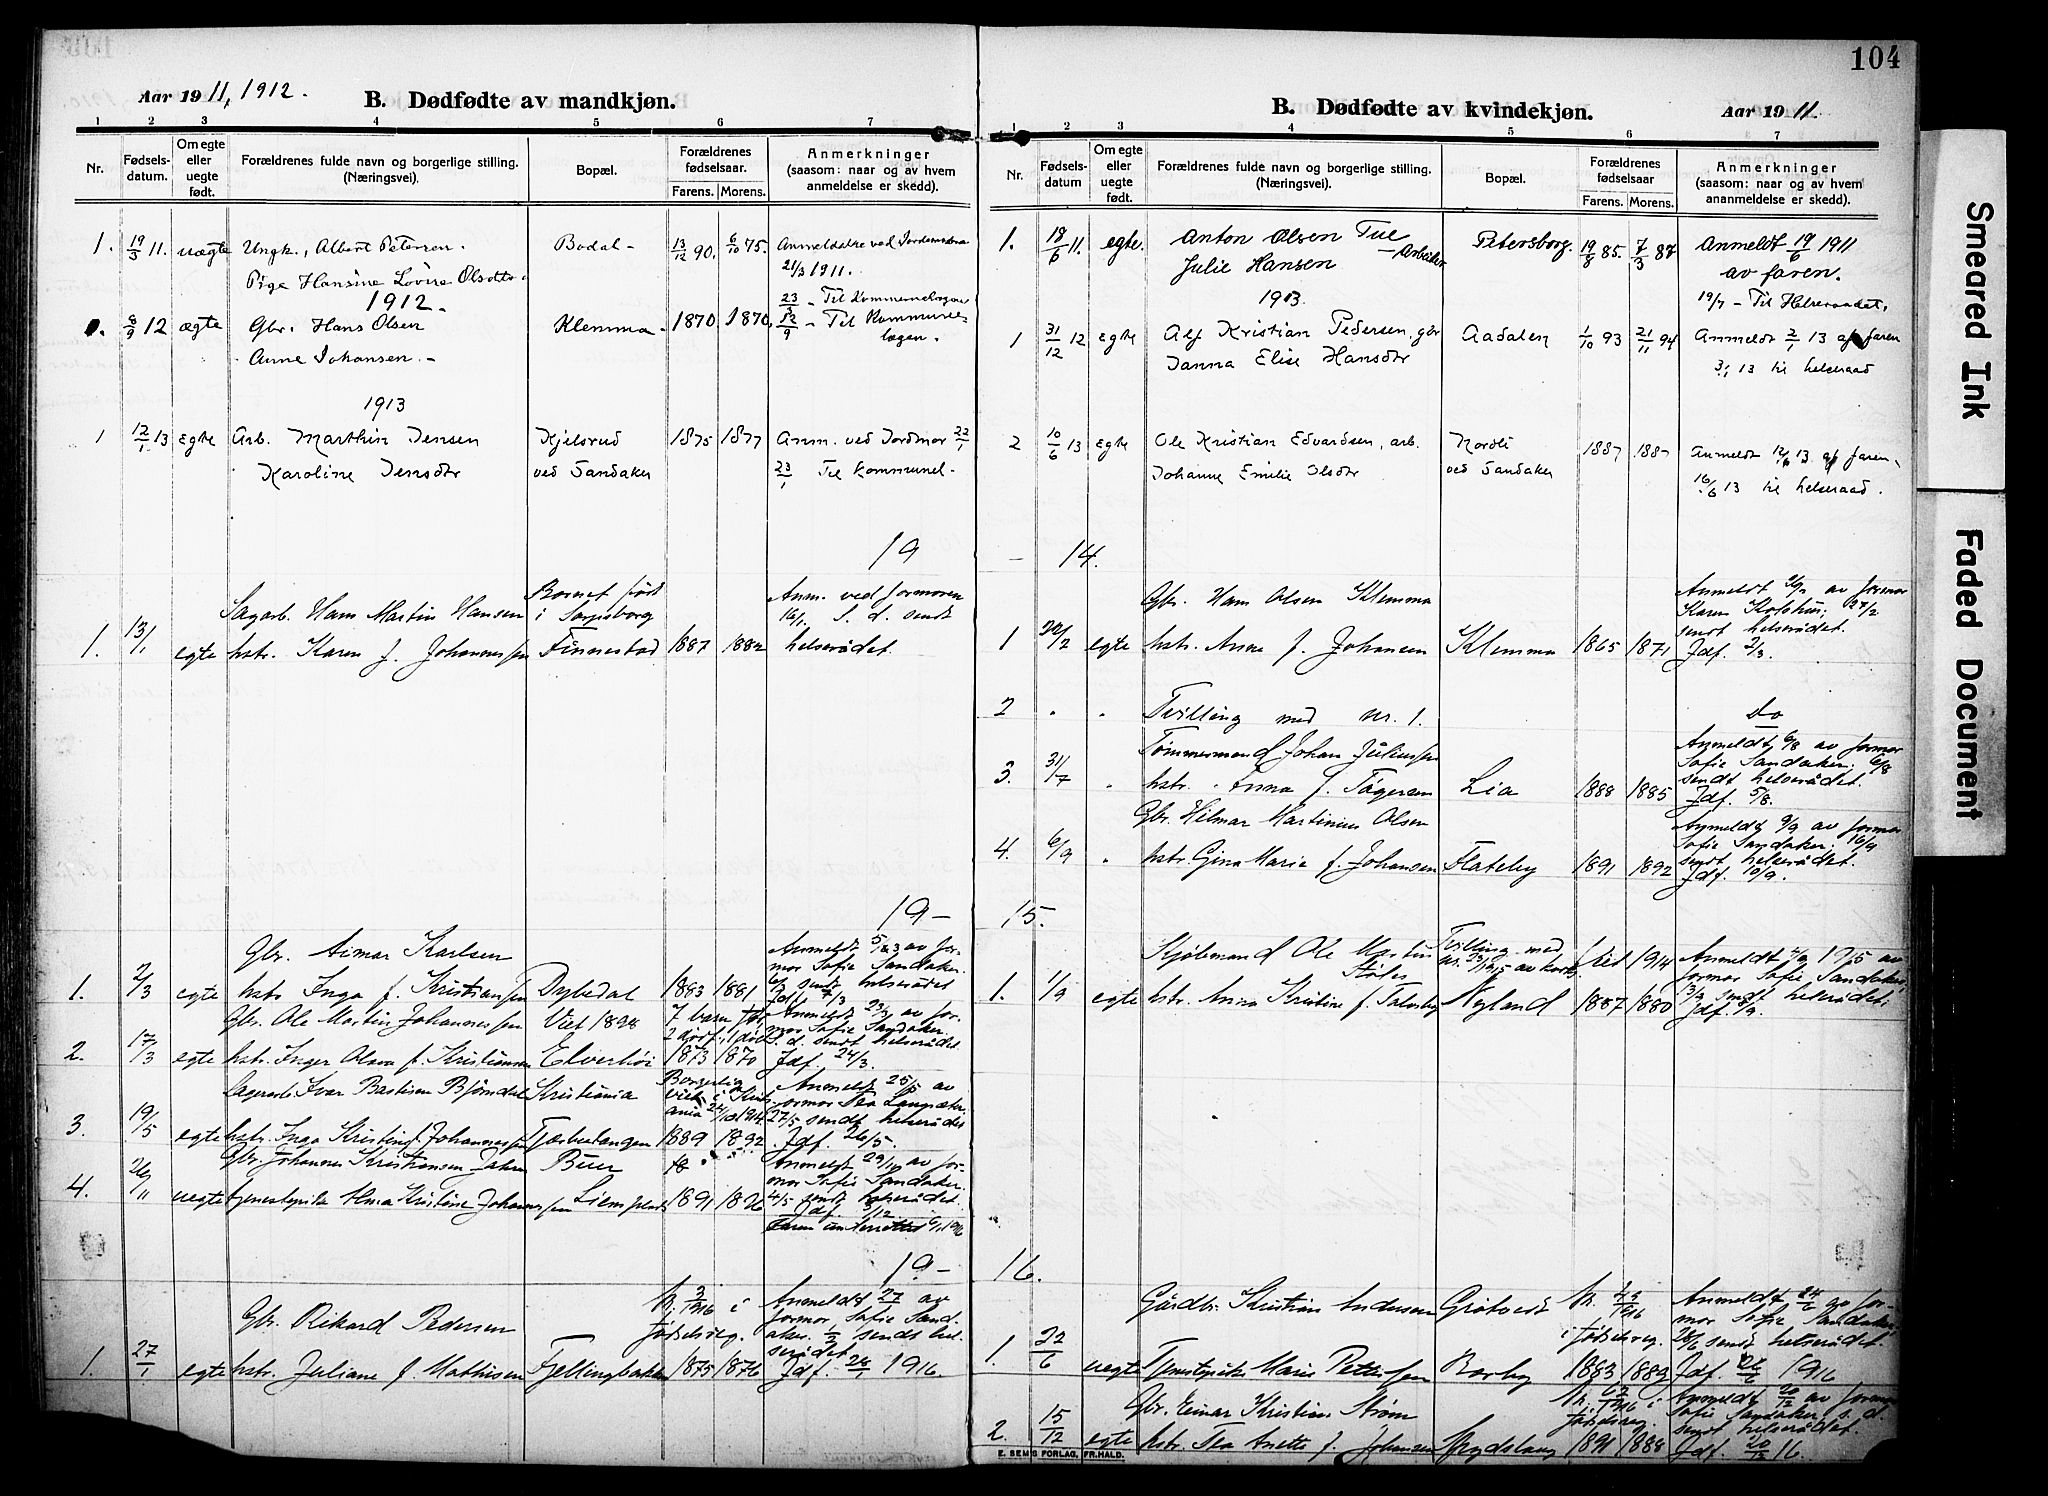 104
Aar 1911, 1912.
B. Dødfødte av mandkjøn.
1 2 3 4 5 6 7
Nr.
Fødsels-
datum.
Om egte
eller
uegte
født.
Forældrenes fulde navn og borgerlige stilling.
(Næringsvei).
Bopæl.
Forældrenes
fødselsaar.
Farens. Morens.
Anmerkninger
(saasom: naar og av hvem
anmeldelse er skedd).
1. 19/3 11. uægte Ungk., Albert Petersen. Bodal - 13/12 90. 6/10 75. Anmeldelse ved Jordemoderen
Pige Hansine Lovise Olsdtr. 21/3 1911.
1912.
8/9 12 ægte Gbr. Hans Olsen Klemma - 1870 1870, 12/9 - Til Kommune-
Anne Johansen. - lægen.
1913
1 12/1 13 egte Arb. Marthin Jensen Kjelsrud 1875 1877 Anm. ved Jordmor 22/1
Karoline Jensdtr ved Sandaker 23/1 Til Kommunel.
19
Sagarb. Hans Martin Hansen Barnet født i Sarpsborg Anm. ved formoren
16/1. S. d. sendt
1. 13/1 egte hstr. Karen f. Johannessen Finnestad 1887 1882 helserådet.
19 -
Gbr. Aimar Karlsen
Anmeldt 5/3 av for-
mor Sofie Sandaker.
1. 2/3 egte hstr. Inga f. Kristiansen Dybedal 1883 1881 Jdf. 7/3
Gbr. Ole Martin Johannessen Viet 1898 7 barn før, Anmeldt 23/3 av for-
2 dødf. 1 død mor Sofie Sandaker.
S. d. sendt helserådet.
2. 17/3 egte hstr. Inger Olava f. Kristiansen Elverhøi 1873 1870 Jdf. 24/3.
Lagerarb. Ivar Bastian Bjørndal Kristiania Borgerlig viet i Kristi-
ania 24/10 1914. Anmeldt 25/5 av
formor Thea Langsæter.
27/5 sendt helserådet
3. 19/5 egte hstr. Inga Kristine f. Johannessen Tjærbutangen 1889 1892 Jdf. 26/5.
Gbr. Johannes Kristiansen Buer Anmeldt 29/11 av for-
mor Sofie Sandaker.
4. 26/11 uegte tjenestepike Alma Kristine Johannessen 1891 sendt helserådet.
Jdf. 3/12
19 -
Gbr. Rikard Pedersen N. 2/1916 i
fødselsreg. Anmeldt 27/1 av
formor, Sofie Sand-
aker. 1/2 sendt hel-
serådet.
1. 27/1 egte hstr. Juliane f. Mathisen Fjellingbakken 1875 1876 Jdf. 28/1 1916.
B. Dødfødte av kvindekjøn.
Aar 1911.
1 2 3 4 5 6 7
Nr.
Fødsels-
datum
Om egte
eller
uegte
født.
Forældrenes fulde navn og borgerlige stilling.
(Næringsvei).
Bopæl.
Forældrenes
fødselsaar
Farens. Morens.
Anmerkninger
(saasom: naar og av hvem
ananmeldelse er skedd).
1. 18/6 11. egte. Anton Olsen Tue - Arbeider Petersborg. 19/8 85. 7/3 87 Anmeldt 19/6 1911
Julie Hansen av faren.
1913. 19/7 - Til Helseraadet.
1 31/12 12 egte Alf Kristian Pedersen, gbr Aadalen 1/10 93 21/11 94 Anmeldt 2/1 13 af faren
Janna Elise Hansdtr 3/1 13 til helseraad
2 10/6 13 egte Ole Kristian Edvardsen, arb. Nordli 1887 1887 Anmeldt 12/6 13 af faren.
Johanne Emilie Olsdtr ved Sandaker 16/6 13 til helseraad.
- 14.
Gbr. Hans Olsen Klemma Anmeldt 26/2 av formor
Karen Kolshus; 27/2
sendt helserådet.
1 20/2 egte hstr. Anne f. Johansen Klemma 1865 1871 Jdf. 2/3.
2 " " Tvilling med nr. 1. do
Tømmermand Johan Juliussen Anmeldt 6/8 av formor
Sofie Sandaker; 6/8
sendt helserådet.
3. 31/7 " hstr. Anna f. Lia 1888 1885 Jdf. 5/8.
Gbr. Hilmar Martinius Olsen Anmeldt 9/9 av formor
Sofie Sandaker; 10/9
sendt helserådet.
4. 6/9 " hstr. Gina Marie f. Johansen Flateby 1891 1892 Jdf. 10/9.
15.
Skjølmand Ole Martin Tvilling med Viet 1914 Anmeldt 4/9 1915 av
formor Sofie Sandaker.
1. 1/9 egte hstr. Anna Kristine f. Nyland 1887 1880 sendt helserådet.
16.
Gårdbr. Kristian Andersen Gråtvedt i fødselsreg. Anmeldt 24/6 av for-
mor Sofie Sandaker.
28/6 sendt helserådet.
1. 22/6 uegte Tjenestepike Marie Pettersen Borby 1883 1889 Jdf. 26/6 1916
Gbr. Einar Kristian Strøm fødselsreg. Anmeldt 20/12 av formor
Sofie Sandaker, s. d.
sendt helserådet.
2. 15/12 egte hstr. Thea Anette f. Johansen 1891 1888 Jdf. 20/12 16.
E. SEMS FORLAG, FR.HALD.
Smeared Ink
Faded Document